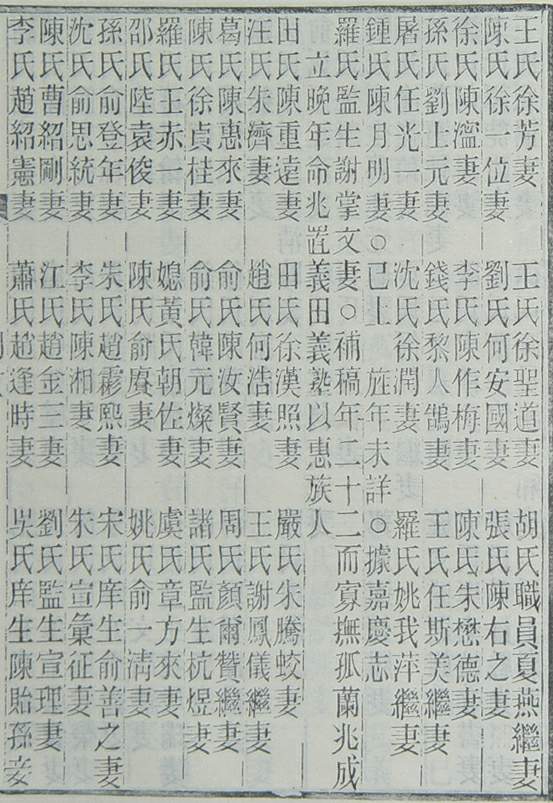 王氏徐芳妻 王氏徐聖道妻 胡氏職員夏燕繼妻
陳氏徐位妻 劉氏何安國妻 張氏陳右之妻
徐氏陳溫妻 李氏陳作梅妻 陳氏朱懋德妻
孫氏劉上元妻 錢氏黎人鵠妻 王氏任斯美繼妻
屠氏任光一妻 沈氏徐潤妻 羅氏姚我萍繼妻
鍾氏陳月明妻○已上 旌年未詳○據嘉慶志
羅氏監生謝掌文妻○補稿年二十二而寡撫孤蘭兆成
立晚年命兆置義田義塾以惠族人
田氏陳重遠妻 田氏徐漢照妻 嚴氏朱騰蛟妻
汪氏朱濟妻 趙氏何浩妻 王氏謝鳳儀繼妻
葛氏陳惠來妻 俞氏陳汝賢妻 周氏顏爾贊繼妻
陳氏徐貞桂妻 俞氏韓元燦妻 諸氏監生杭煜妻
羅氏王赤一妻 媳黃氏朝佐妻 虞氏章方來妻
邵氏陸袁俊妻 陳氏俞賡妻 姚氏俞一淸妻
孫氏俞登年妻 朱氏趙霦熙妻 宋氏庠生俞善之妻
沈氏俞思統妻 李氏陳湘妻 朱氏宣彙征妻
陳氏曹紹剛妻 江氏趙金三妻 劉氏監生宣理妻
李氏趙紹憲妻 蕭氏趙逢時妻 吳氏庠生陳貽孫妾